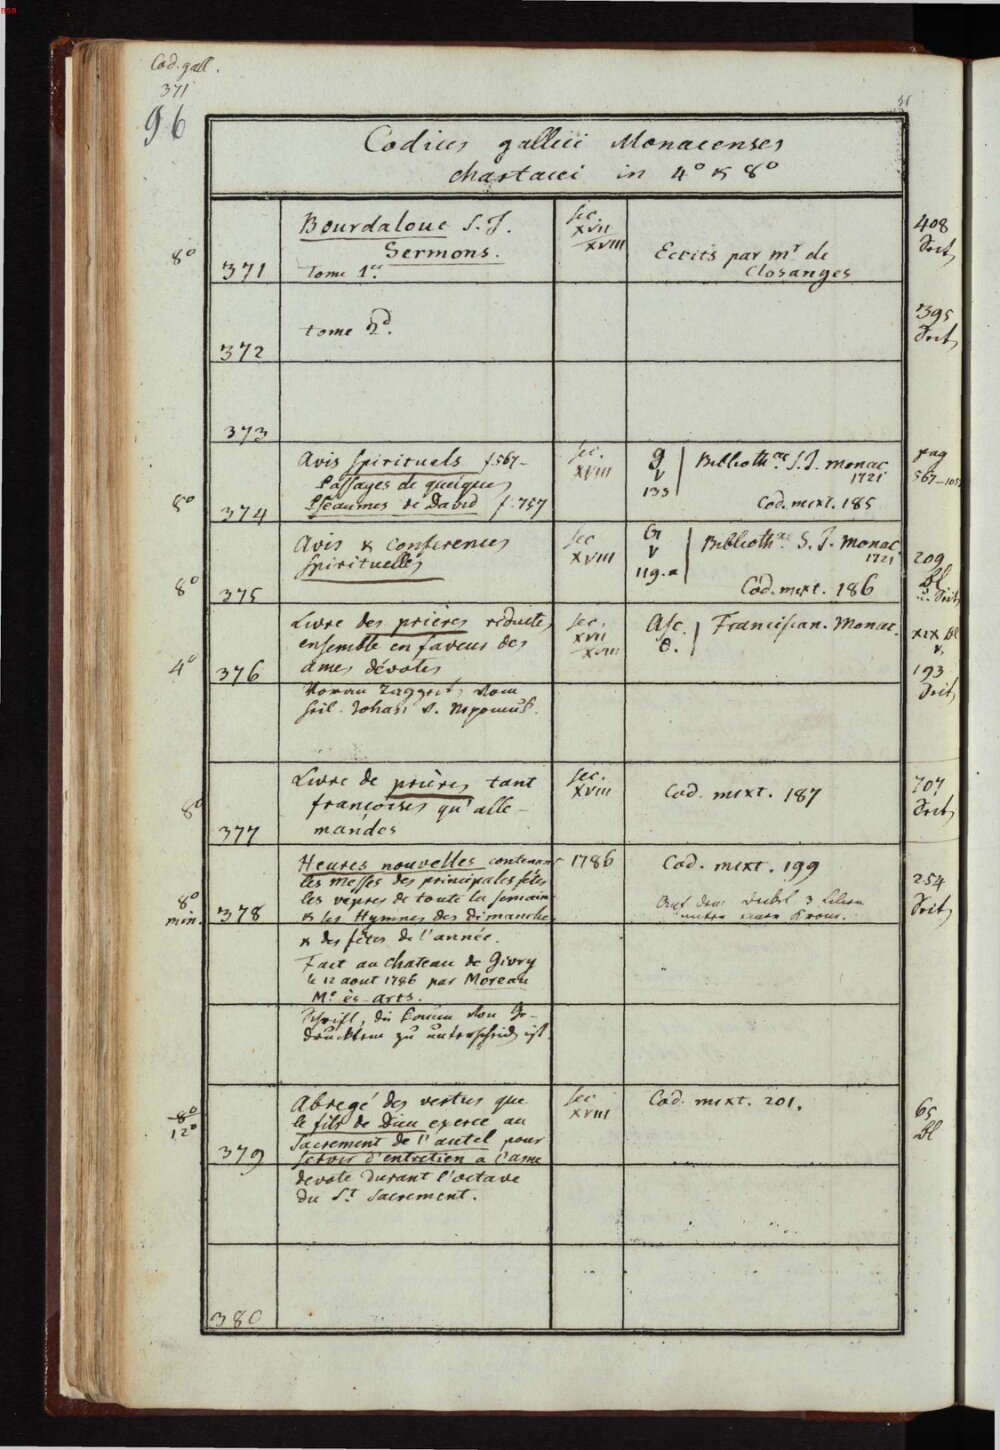 BSB
Cod. gall.
371
96
Codices gallici Monacenses
chartacei in 4° & 8°
8°
371
Bourdaloue S. J.
Sermons.
Tome 1er.
sec.
XVII
XVIII
Ecrits par mr de
Closanges
408
Seit
372
tome 2d.
395
Seit
373
8°
374
Avis spirituels f. 567-
Passages de quelques
Pseaumes de David f. 757
sec.
XVIII
g
V
133
Biblioth.ae S. J. Monac
1721
Cod. mixt. 185
pag
567-105
8°
375
Avis & conferences
spirituelles
sec
XVIII
G
V
119.a
Biblioth.ae S. J. Monac
1721
Cod. mixt. 186
209
Bl
Seit
4°
376
Livre des prières réduites
ensemble en faveur des
ames dévotes
sec.
XVII
XVIII
Asc.
θ.
Franciscan. Monac.
XIX Bl
&
193
Seit
Johan v. Nepomuk.
8°
377
Livre de prières tant
françoises qu'alle-
mandes
sec.
XVIII
Cod. mixt. 187
707
Seit
8°
min.
378
Heures nouvelles contenant
les messes des principales fêtes
les vepres de toute la semaine
& les Hymnes des dimanches
1786
Cod. mixt. 199
Auf dem 3 Lilien
unter einer Krone.
254
Seit
& des fêtes de l'année.
Fait au chateau de Givry
le 12 aout 1786 par Moreau
Me ès-arts.
Schrift, die kaum von Ge-
drucktem zu unterscheid. ist.
8°
12°
379
Abregé des vertus que
le fils de Dieu exerce au
sacrement de l'autel pour
servir d'entretien a l'ame
sec
XVIII
Cod. mixt. 201.
65
Bl
devote durant l'octave
du St Sacrement.
380